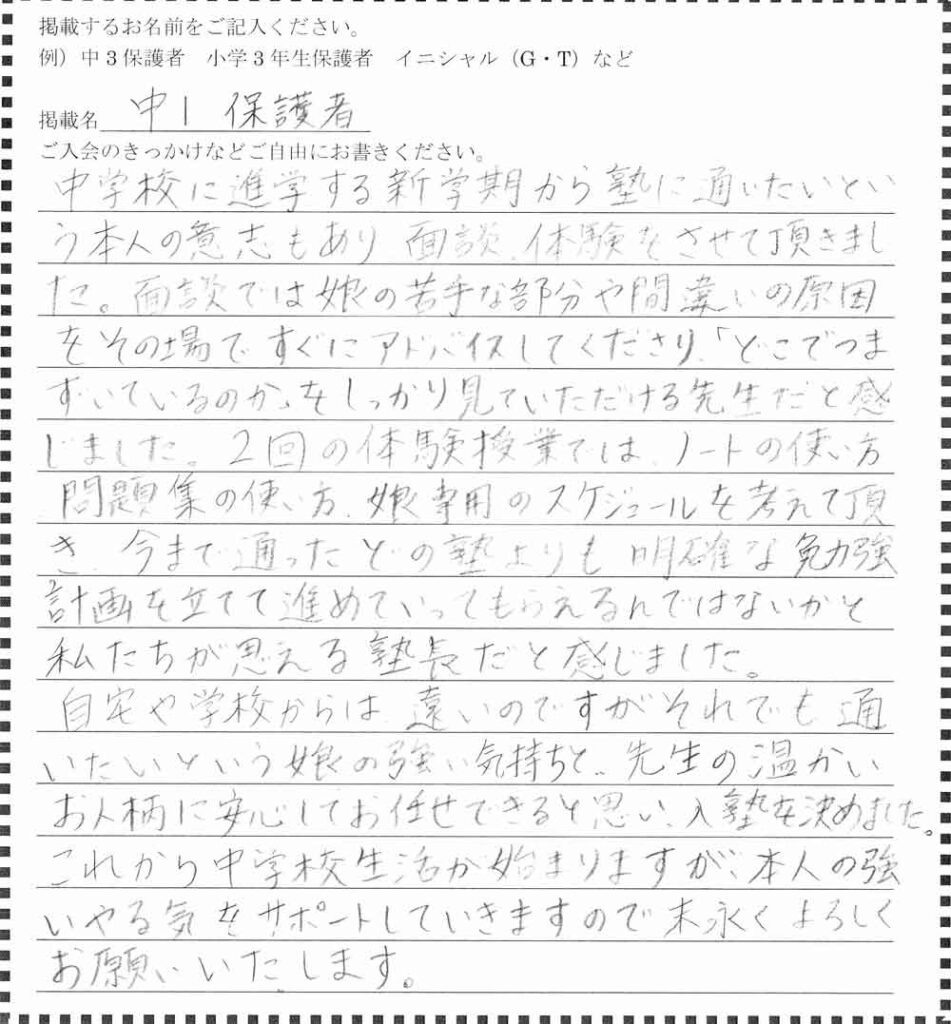 掲載するお名前をご記入ください。
例）中３保護者　小学３年生保護者　イニシャル（G・T）など
掲載名 中１ 保護者
ご入会のきっかけなどご自由にお書きください。
中学校に進学する新学期から塾に通いたいとい
う本人の意志もあり 面談、体験をさせて頂きまし
た。面談では娘の苦手な部分や間違いの原因
をその場ですぐにアドバイスしてくださり、「どこでつま
ずいているのか」をしっかり見ていただける先生だと感
じました。２回の体験授業では、ノートの使い方
問題集の使い方、娘専用のスケジュールを考えて頂
き、今まで通ったどの塾よりも明確な勉強
計画を立てて進めていってもらえるんではないかと
私たちが思える塾長だと感じました。
自宅や学校からは、遠いのですがそれでも通
いたいという娘の強い気持ちと、先生の温かい
お人柄に安心してお任せできると思い、入塾を決めました。
これから中学校生活が始まりますが、本人の強
いやる気をサポートしていきますので末永くよろしく
お願いいたします。